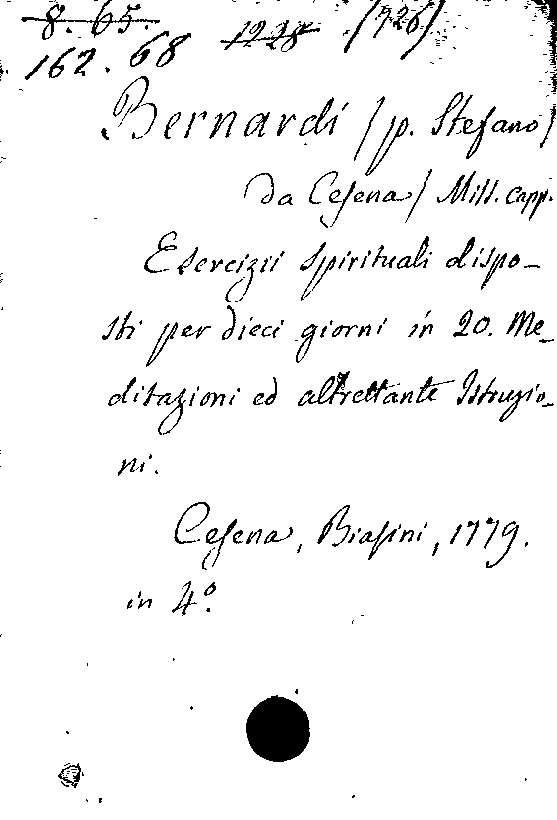 8. 65. 1228 (726)
162. 68
Bernardi (p. Stefano
da Cesena) Miss. capp.
Esercizii spirituali dispo-
sti per dieci giorni in 20. Me-
ditazioni ed altrettante Istruzio-
ni.
Cesena, Biasini, 1779.
in 4º.